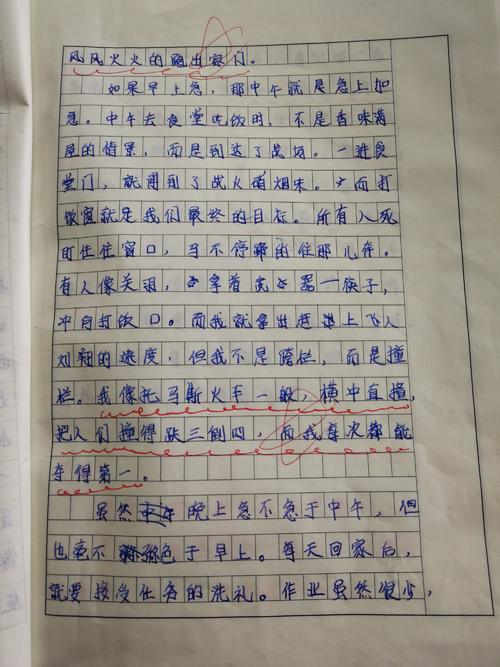 风风火火的跑出家门。
如果早上急，那中午就是急上加
急。中午去食堂吃饭时，不是香味满
屋的情景，而是到达了战场。一进食
堂门，就闻到了战火硝烟味。而打
饭窗就是我们最终的目标。所有人死
盯住住窗口，马不停蹄的往那儿奔。
有人像关羽，拿着武器—筷子，
冲向打饭口。而我就拿出赶上飞人
刘翔的速度，但我不是跨栏，而是撞
栏。我像托马斯火车一般，横冲直撞，
把人们撞得跌三倒四，而我每次都能
夺得第一。
虽然晚上急不急于中午，但
也毫不逊色于早上。每天回家后，
就要接受任务的洗礼。作业虽然很少，